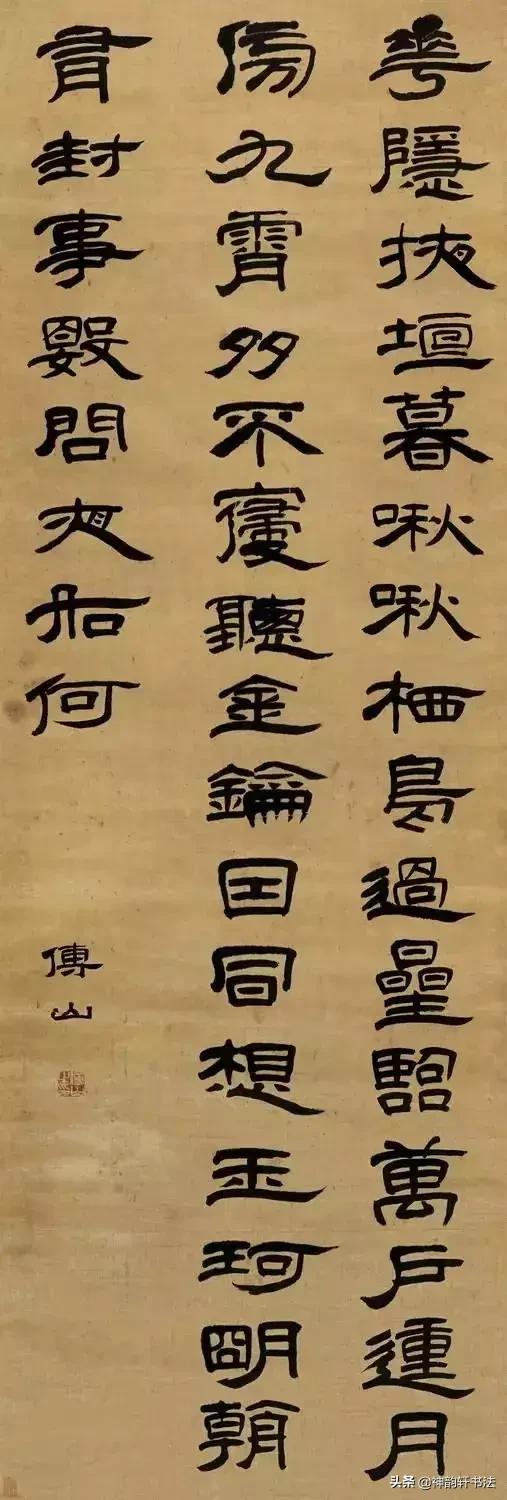 花隱掖垣暮啾啾栖鳥過曐臨萬戶動月
傍九霄多不寢聽金鑰因風想玉珂明朝
有封事數問夜如何
傅山
头条 @神韵轩书法